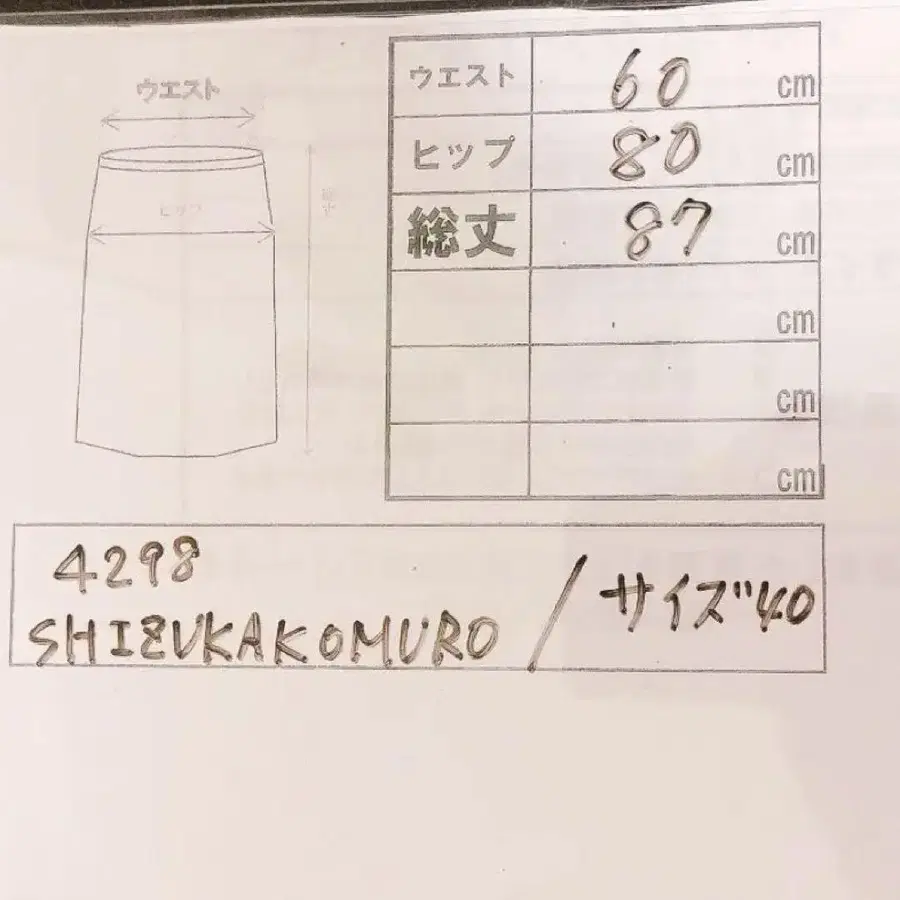 ウエスト
ヒップ
総丈
ウエスト 60 cm
ヒップ 80 cm
総丈 87 cm
cm
cm
cm
4298
SHIZUKAKOMURO / サイズ40